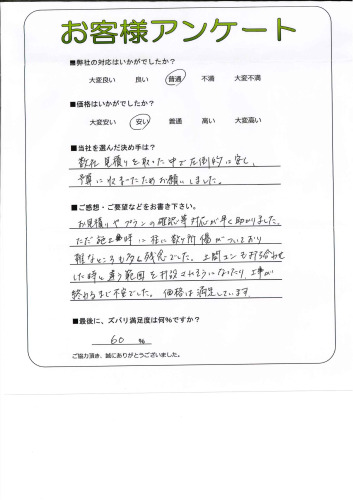 お客様アンケート
■弊社の対応はいかがでしたか？
大変良い 良い 普通 不満 大変不満
■価格はいかがでしたか？
大変安い 安い 普通 高い 大変高い
■当社を選んだ決め手は？
数社見積りを取った中で圧倒的に安く、
予算に収まったためお願いしました。
■ご感想・ご要望などをお書き下さい。
お見積りやプランの確認等対応が早く助かりました。
ただ施工時に柱に数ヶ所傷がついており
雑なところも多々残念でした。土間コンも打ち合わせ
した時と違う範囲を打設されそうになったり、工事が
終わるまで不安でした。価格は満足しています。
■最後に、ズバリ満足度は何%ですか？
60 %
ご協力頂き、誠にありがとうございました。